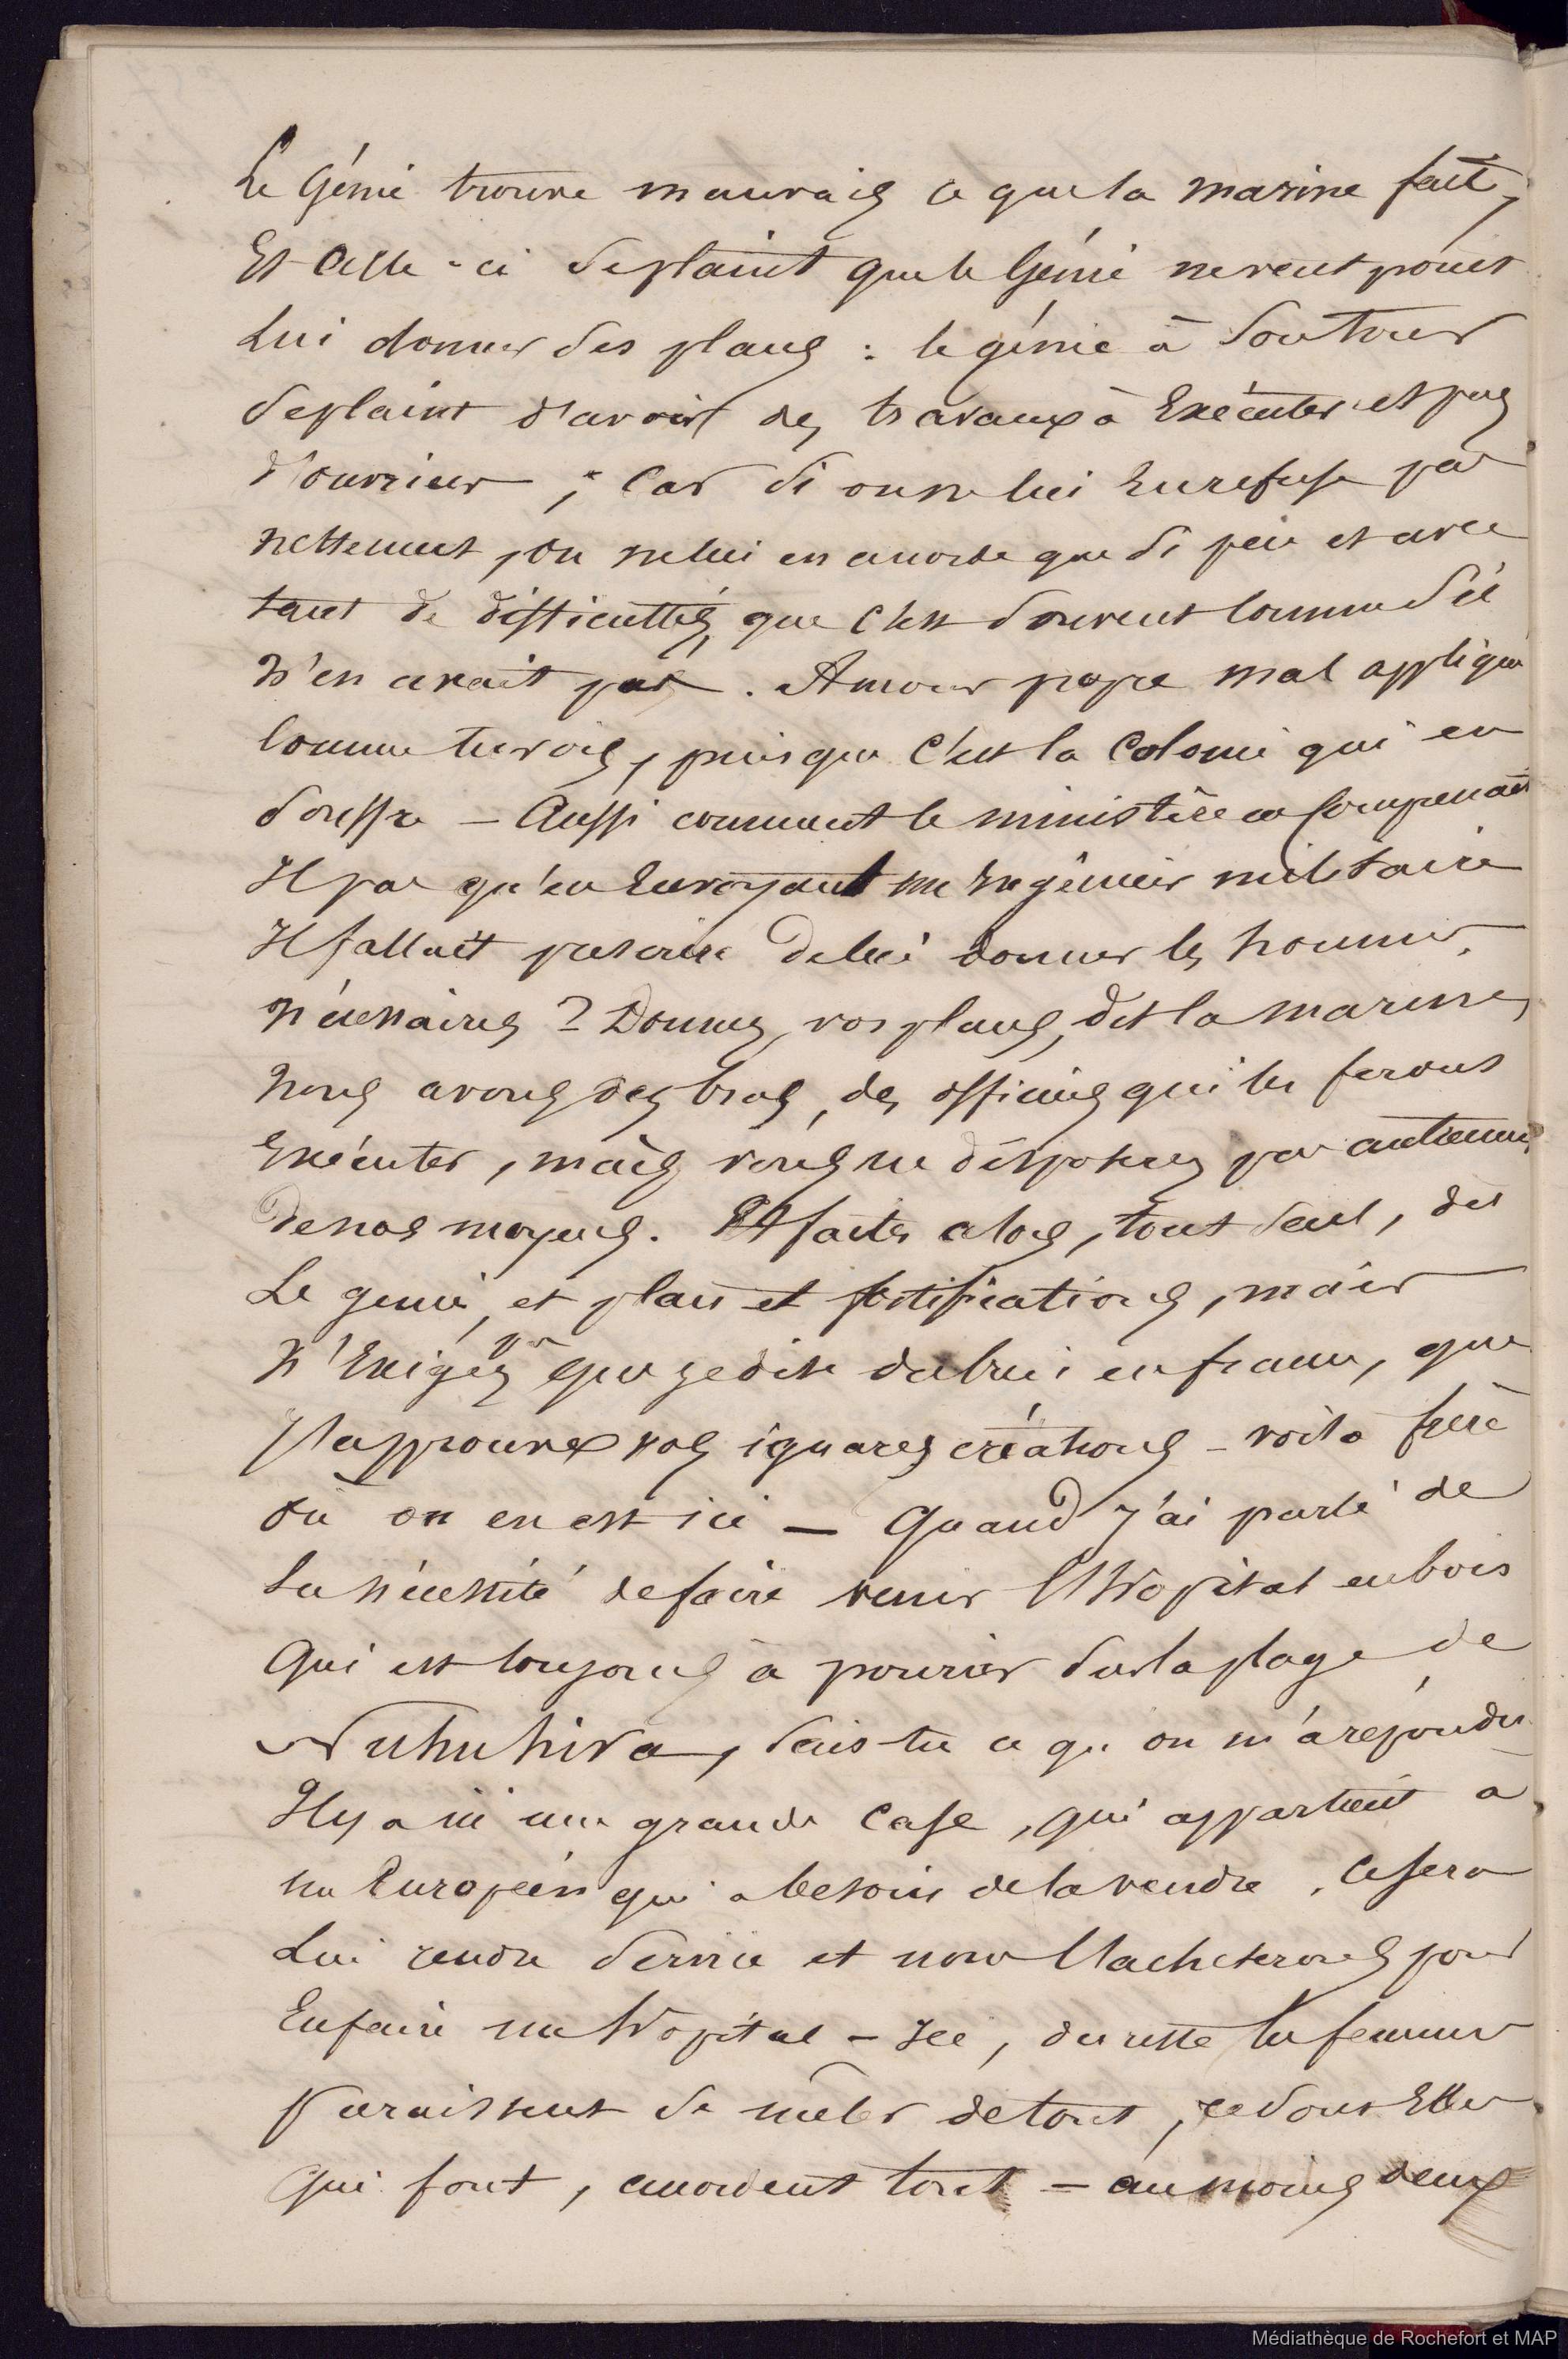 Le Génie trouve mauvais ce que la marine fait,
Et Celle-ci se plaint que le Génie ne veut point
Lui donner ses plans : le génie à Son tour
Se plaint d'avoir des travaux à Exécuter et pas
d'ouvriers ; Car Si on ne lui En refuse pas
nettement, on ne lui en accorde que Si peu et avec
tant de difficultés, que C'est Souvent Comme S'il
N'en avait pas. Amour propre mal appliqué
Comme tu vois, puisque C'est la Colonie qui en
Souffre — Aussi comment le ministère ne Comprenait
Il pas qu'en Envoyant un Ingénieur militaire
Il fallait prescrire De lui donner les hommes
Nécessaires ? Donnez, vos plans, dit la marine,
Nous avons des bras, des officiers qui les feront
Exécuter, mais vous ne disposerez pas autrement
De nos moyens. Et faites alors, tout Seul, dit
Le génie, et plan et fortifications, mais
N'Exigez pas que je dise d'abri en france, que
J'approuve vos ignares créations — voilà frère
Où on en est ici — Quand J'ai parlé de
La nécessité de faire venir l'Hopital en bois
Qui est toujours à pourrir Sur la plage de
Nuhuhiva, Sais-tu ce qu'on m'a répondu
Il y a ici une grande Case, qui appartient à
un Européen qui a besoin de la vendre, Ce sera
Lui rendre Service et nous l'acheterons pour
En faire un Hopital — Ici, du reste les femmes
Paraissent Se mêler de tout, ce Sont Elles
Qui font, accordent tout — au moins deux
Médiathèque de Rochefort et MAP